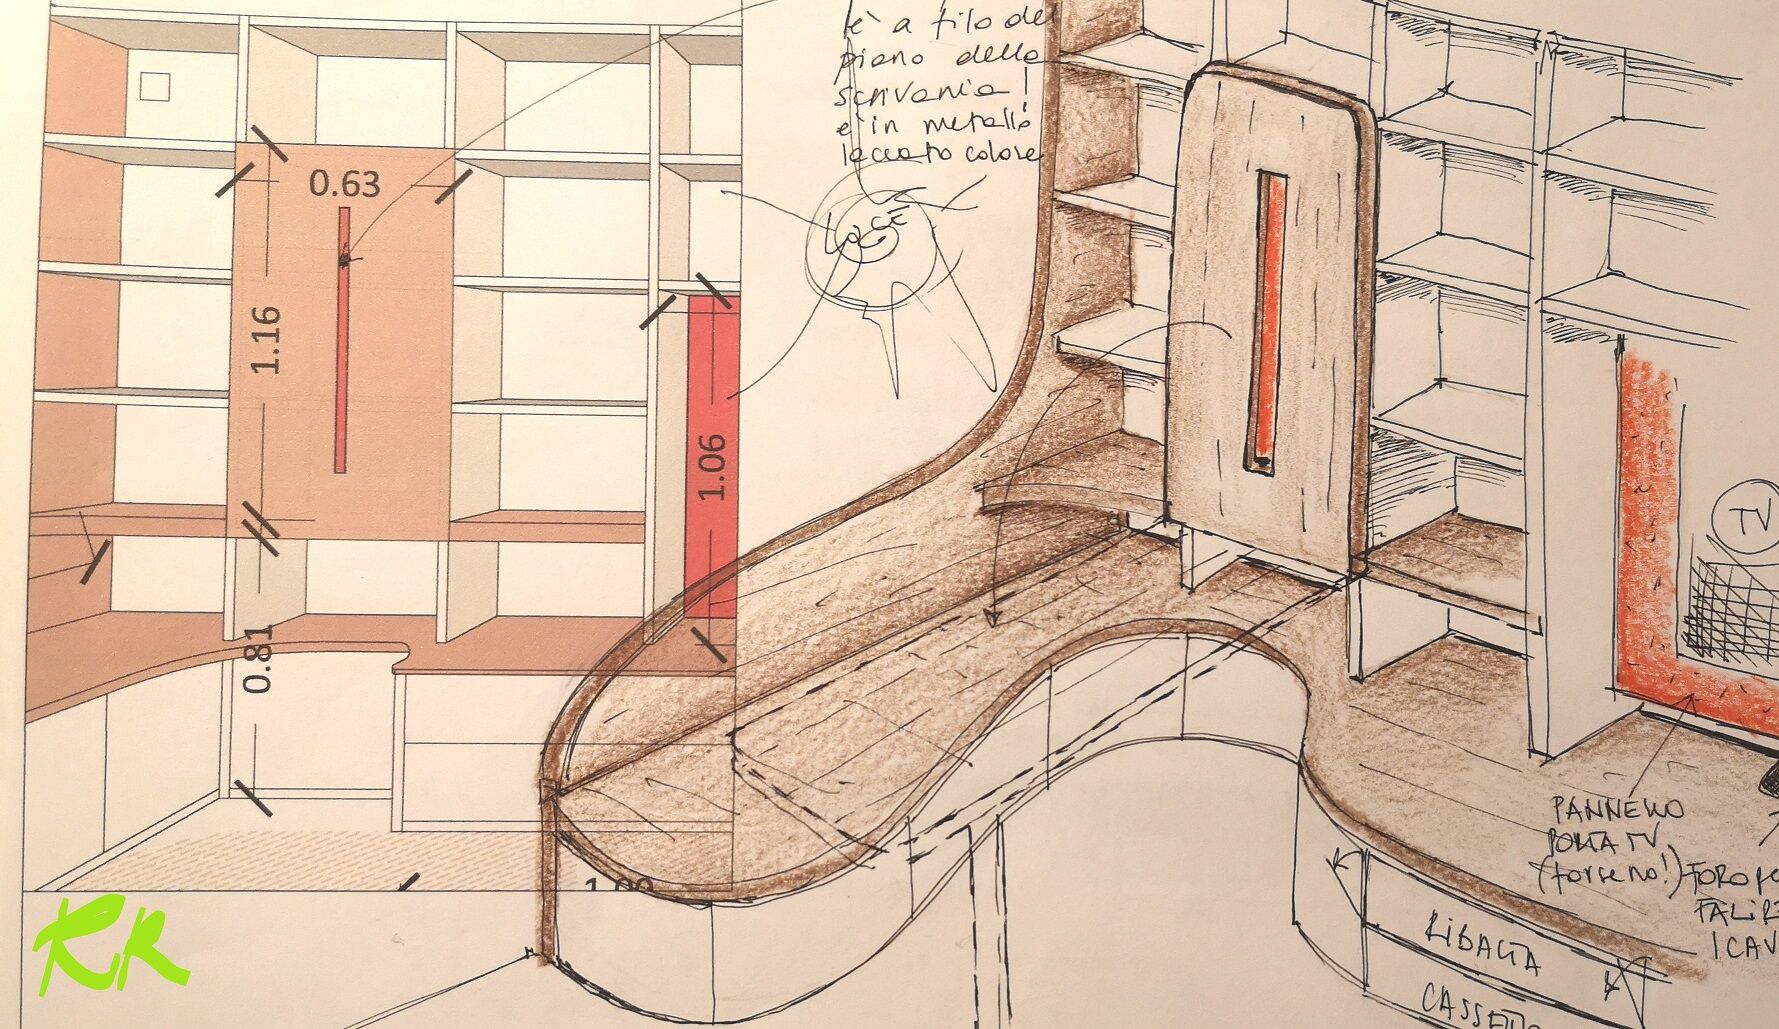 è a filo del
piano della
scrivania!
è in metallo
laccato colore
LUCE
0.63
1.16
1.06
0.81
1.00
TV
PANNELLO
PORTA TV
(forse no!)
FORO
RIBALTA
CASSETTO
RR